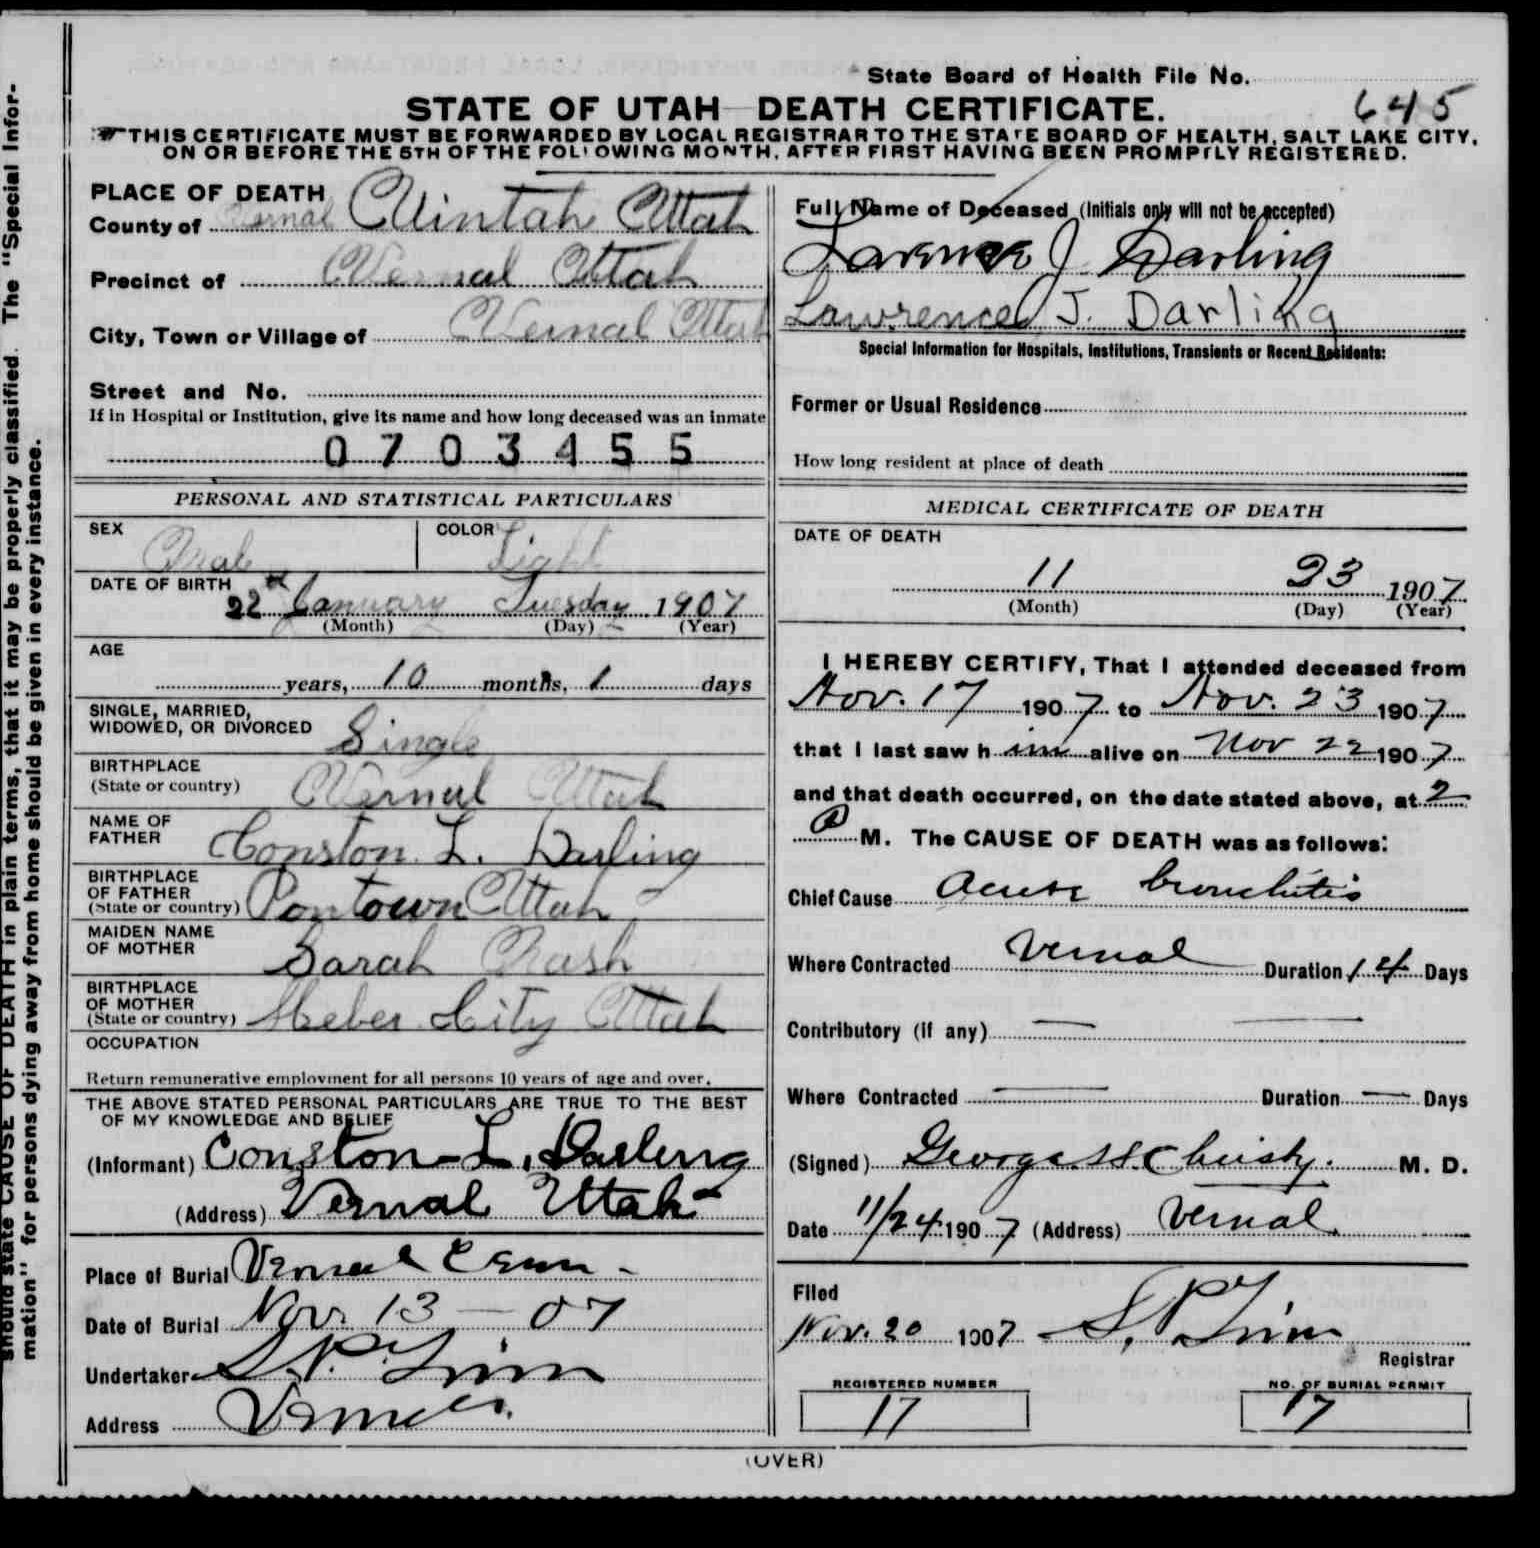 State Board of Health File No.
645
STATE OF UTAH—DEATH CERTIFICATE.
THIS CERTIFICATE MUST BE FORWARDED BY LOCAL REGISTRAR TO THE STATE BOARD OF HEALTH, SALT LAKE CITY,
ON OR BEFORE THE 5TH OF THE FOLLOWING MONTH, AFTER FIRST HAVING BEEN PROMPTLY REGISTERED.
should state CAUSE OF DEATH in plain terms, that it may be properly classified. The "Special Infor-
mation" for persons dying away from home should be given in every instance.
PLACE OF DEATH
County of Vernal Uintah Utah
Precinct of Vernal Utah
City, Town or Village of Vernal Utah
Street and No.
If in Hospital or Institution, give its name and how long deceased was an inmate
0703455
PERSONAL AND STATISTICAL PARTICULARS
SEX Male COLOR Light
DATE OF BIRTH 22 January Tuesday 1907
(Month) (Day) (Year)
AGE
years, 10 months, 1 days
SINGLE, MARRIED,
WIDOWED, OR DIVORCED Single
BIRTHPLACE
(State or country) Vernal Utah
NAME OF
FATHER Conston L. Darling
BIRTHPLACE
OF FATHER
(State or country) Pontown Utah
MAIDEN NAME
OF MOTHER Sarah Nash
BIRTHPLACE
OF MOTHER
(State or country) Heber City Utah
OCCUPATION
Return remunerative employment for all persons 10 years of age and over.
THE ABOVE STATED PERSONAL PARTICULARS ARE TRUE TO THE BEST
OF MY KNOWLEDGE AND BELIEF
(Informant) Conston L. Darling
(Address) Vernal Utah
Place of Burial Vernal Cem
Date of Burial Nov. 13 — 07
Undertaker S. P. Trim
Address Vernal
Full Name of Deceased (Initials only will not be accepted)
Larence J Darling
Lawrence J. Darling
Special Information for Hospitals, Institutions, Transients or Recent Residents:
Former or Usual Residence
How long resident at place of death
MEDICAL CERTIFICATE OF DEATH
DATE OF DEATH
11 23 1907
(Month) (Day) (Year)
I HEREBY CERTIFY, That I attended deceased from
Nov. 17 1907 to Nov. 23 1907
that I last saw h im alive on Nov 22 1907
and that death occurred, on the date stated above, at 2
P M. The CAUSE OF DEATH was as follows:
Chief Cause Acute bronchitis
Where Contracted Vernal Duration 14 Days
Contributory (if any) — —
Where Contracted — Duration — Days
(Signed) George H. Christy. M. D.
Date 11/24 1907 (Address) Vernal
Filed
Nov. 20 1907 S. P. Trim
Registrar
REGISTERED NUMBER NO. OF BURIAL PERMIT
17 17
(OVER)